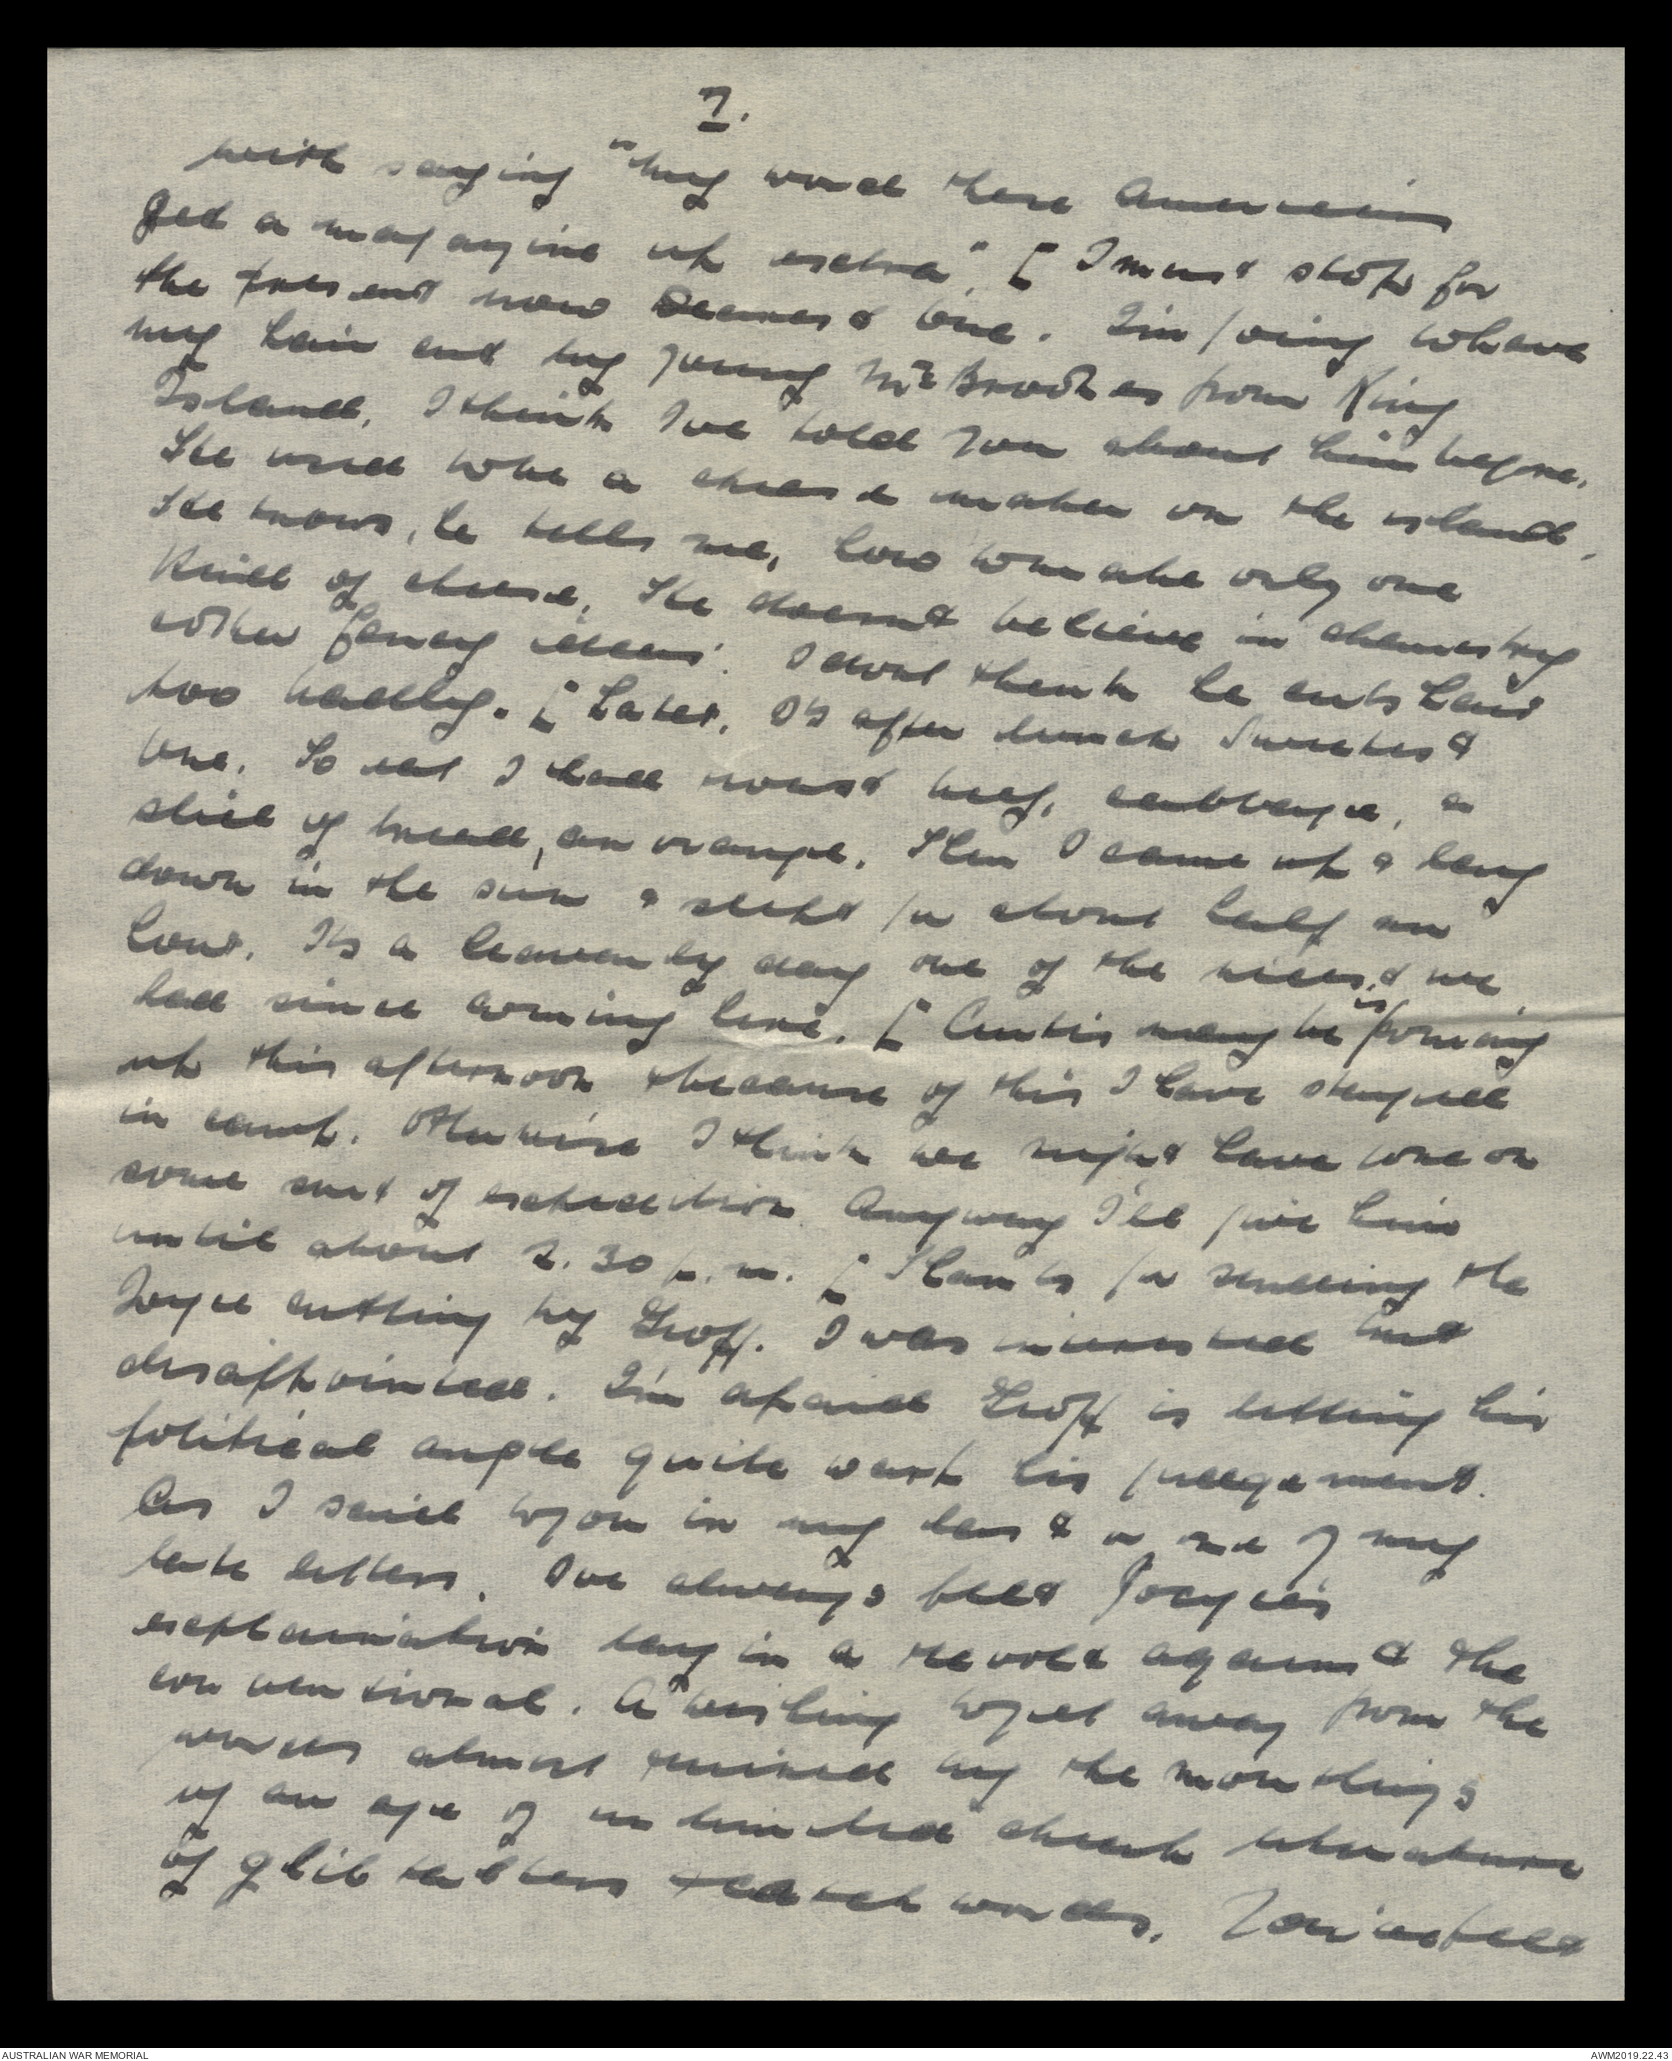 7.
with saying "my word these Americans
get a magazine up extra". [ I must stop for
the present now Dearest One. I'm going to have
my hair cut by young McBrookes from King
Island. I think I've told you about him before.
He used to be a cheese maker on the island.
He knows, he tells me, how to make only one
kind of cheese. He doesn't believe in chemistry
other fancy ideas. I dont think he cuts hair
too badly. [ Later. It's after lunch Sweetest
One. To eat I had roast beef, cabbage, a
slice of bread, an orange. Then I came up & lay
down in the sun & slept for about half an
hour. It's a heavenly day one of the nicest we
had since coming here. [ Curtis may be is coming
up this afternoon & because of this I have stayed
in camp. Otherwise I think we might have gone on
some sort of expedition. Anyway I'll give him
until about 2.30 p.m. [ Thanks for sending the
Joyce cutting by Geoff. I was interested but
disappointed. I'm afraid Geoff is letting his
political angle quite warp his judgement.
As I said to you in my last or one of my
late letters. I've always felt Joyce's
explanation lay in a revolt against the
conventional. A wishing to get away from the
words almost ruined by the mouthings
of an age of unlimited cheap literature
of glib talkers & catch words. You've felt
AUSTRALIAN WAR MEMORIAL
AWM2019.22.43